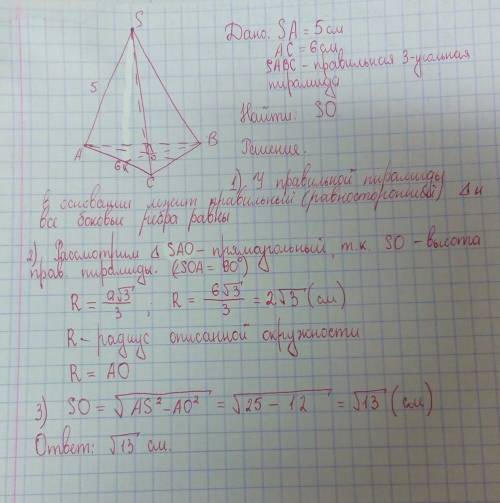 S
Дано: SA = 5 см
AC = 6 см
SABC - правильная 3-угольная
пирамида
5
Найти: SO
A
B
O
6
C
Решение.
1) У правильной пирамиды
в основании лежит правильный (равносторонний) Δ и
все боковые рёбра равны
2) Рассмотрим Δ SAO - прямоугольный, т.к. SO - высота
прав. пирамиды. (∠SOA = 90°)
R = a√3/3 ; R = 6√3/3 = 2√3 (см)
R - радиус описанной окружности
R = AO
3) SO = √AS² - AO² = √25 - 12 = √13 (см)
Ответ: √13 см.